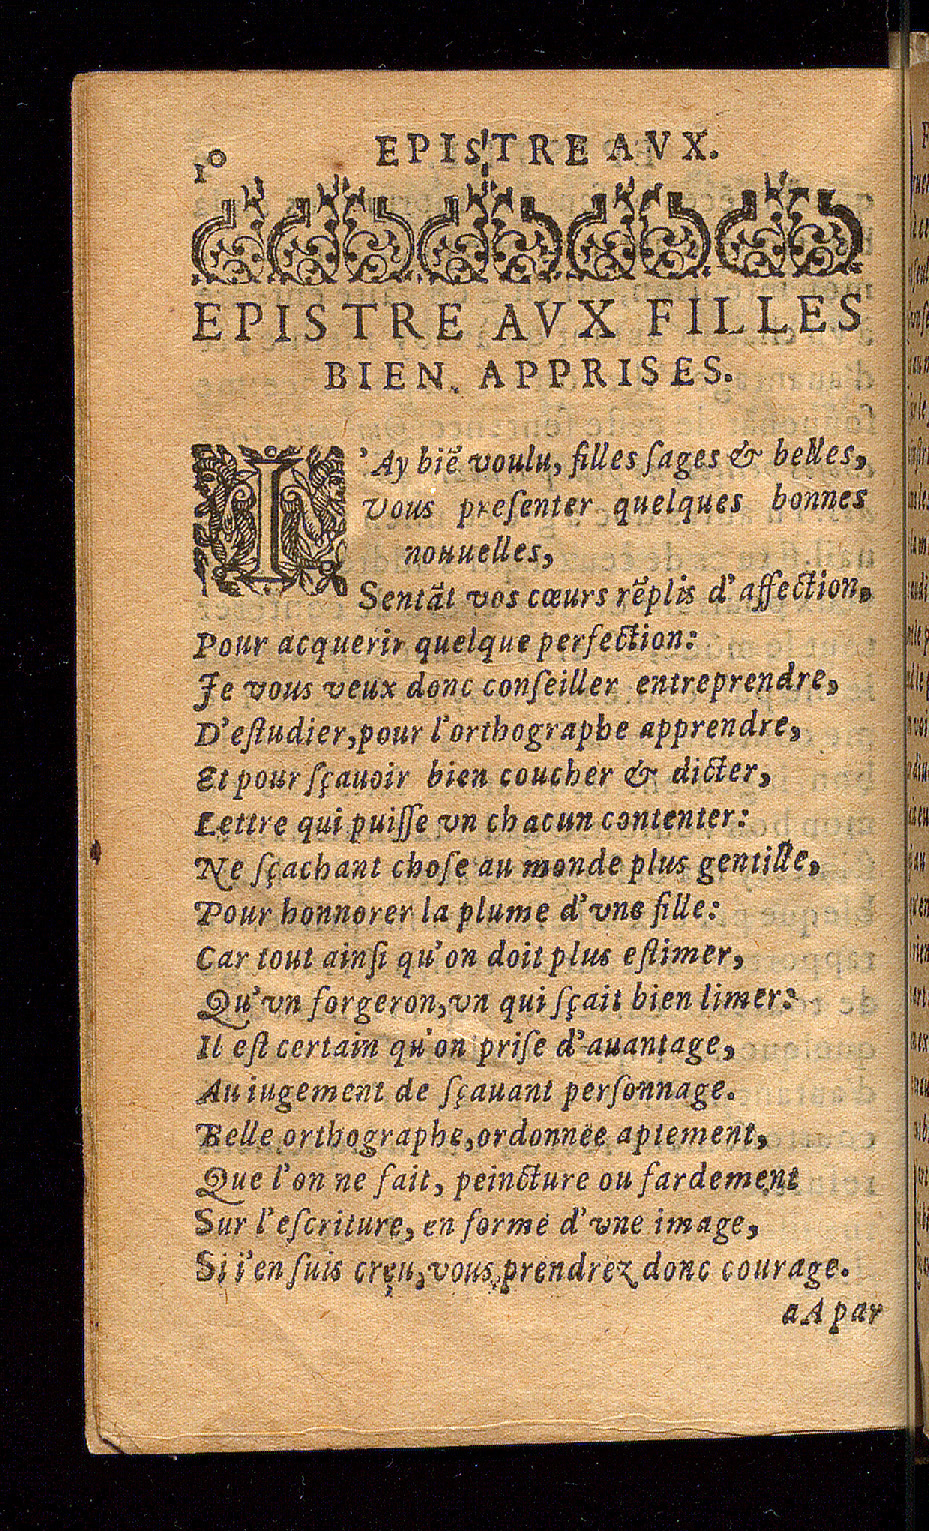 10 EPISTRE AVX.
EPISTRE AVX FILLES
BIEN APPRISES.
I'Ay biẽ voulu, filles ſages & belles,
Vous preſenter quelques bonnes
nouuelles,
Sentãt vos cœurs rẽplis d'affection,
Pour acquerir quelque perfection:
Je vous veux donc conſeiller entreprendre,
D'eſtudier, pour l'orthographe apprendre,
Et pour ſçauoir bien coucher & dicter,
Lettre qui puiſſe vn chacun contenter:
Ne ſçachant choſe au monde plus gentille,
Pour honnorer la plume d'vne fille:
Car tout ainſi qu'on doit plus eſtimer,
Qu'vn forgeron, vn qui ſçait bien limer:
Il eſt certain qu'on priſe d'auantage,
Au iugement de ſçauant perſonnage.
Belle orthographe, ordonnée aptement,
Que l'on ne fait, peincture ou fardement
Sur l'eſcriture, en forme d'vne image,
Si i'en ſuis creu, vous prendrez donc courage.
a A par